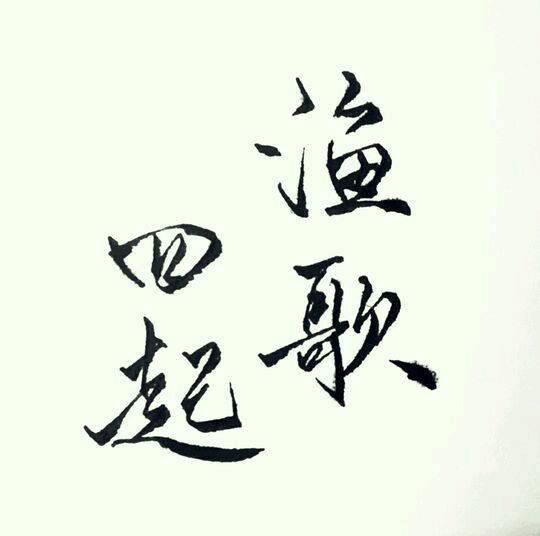 渔歌
四起